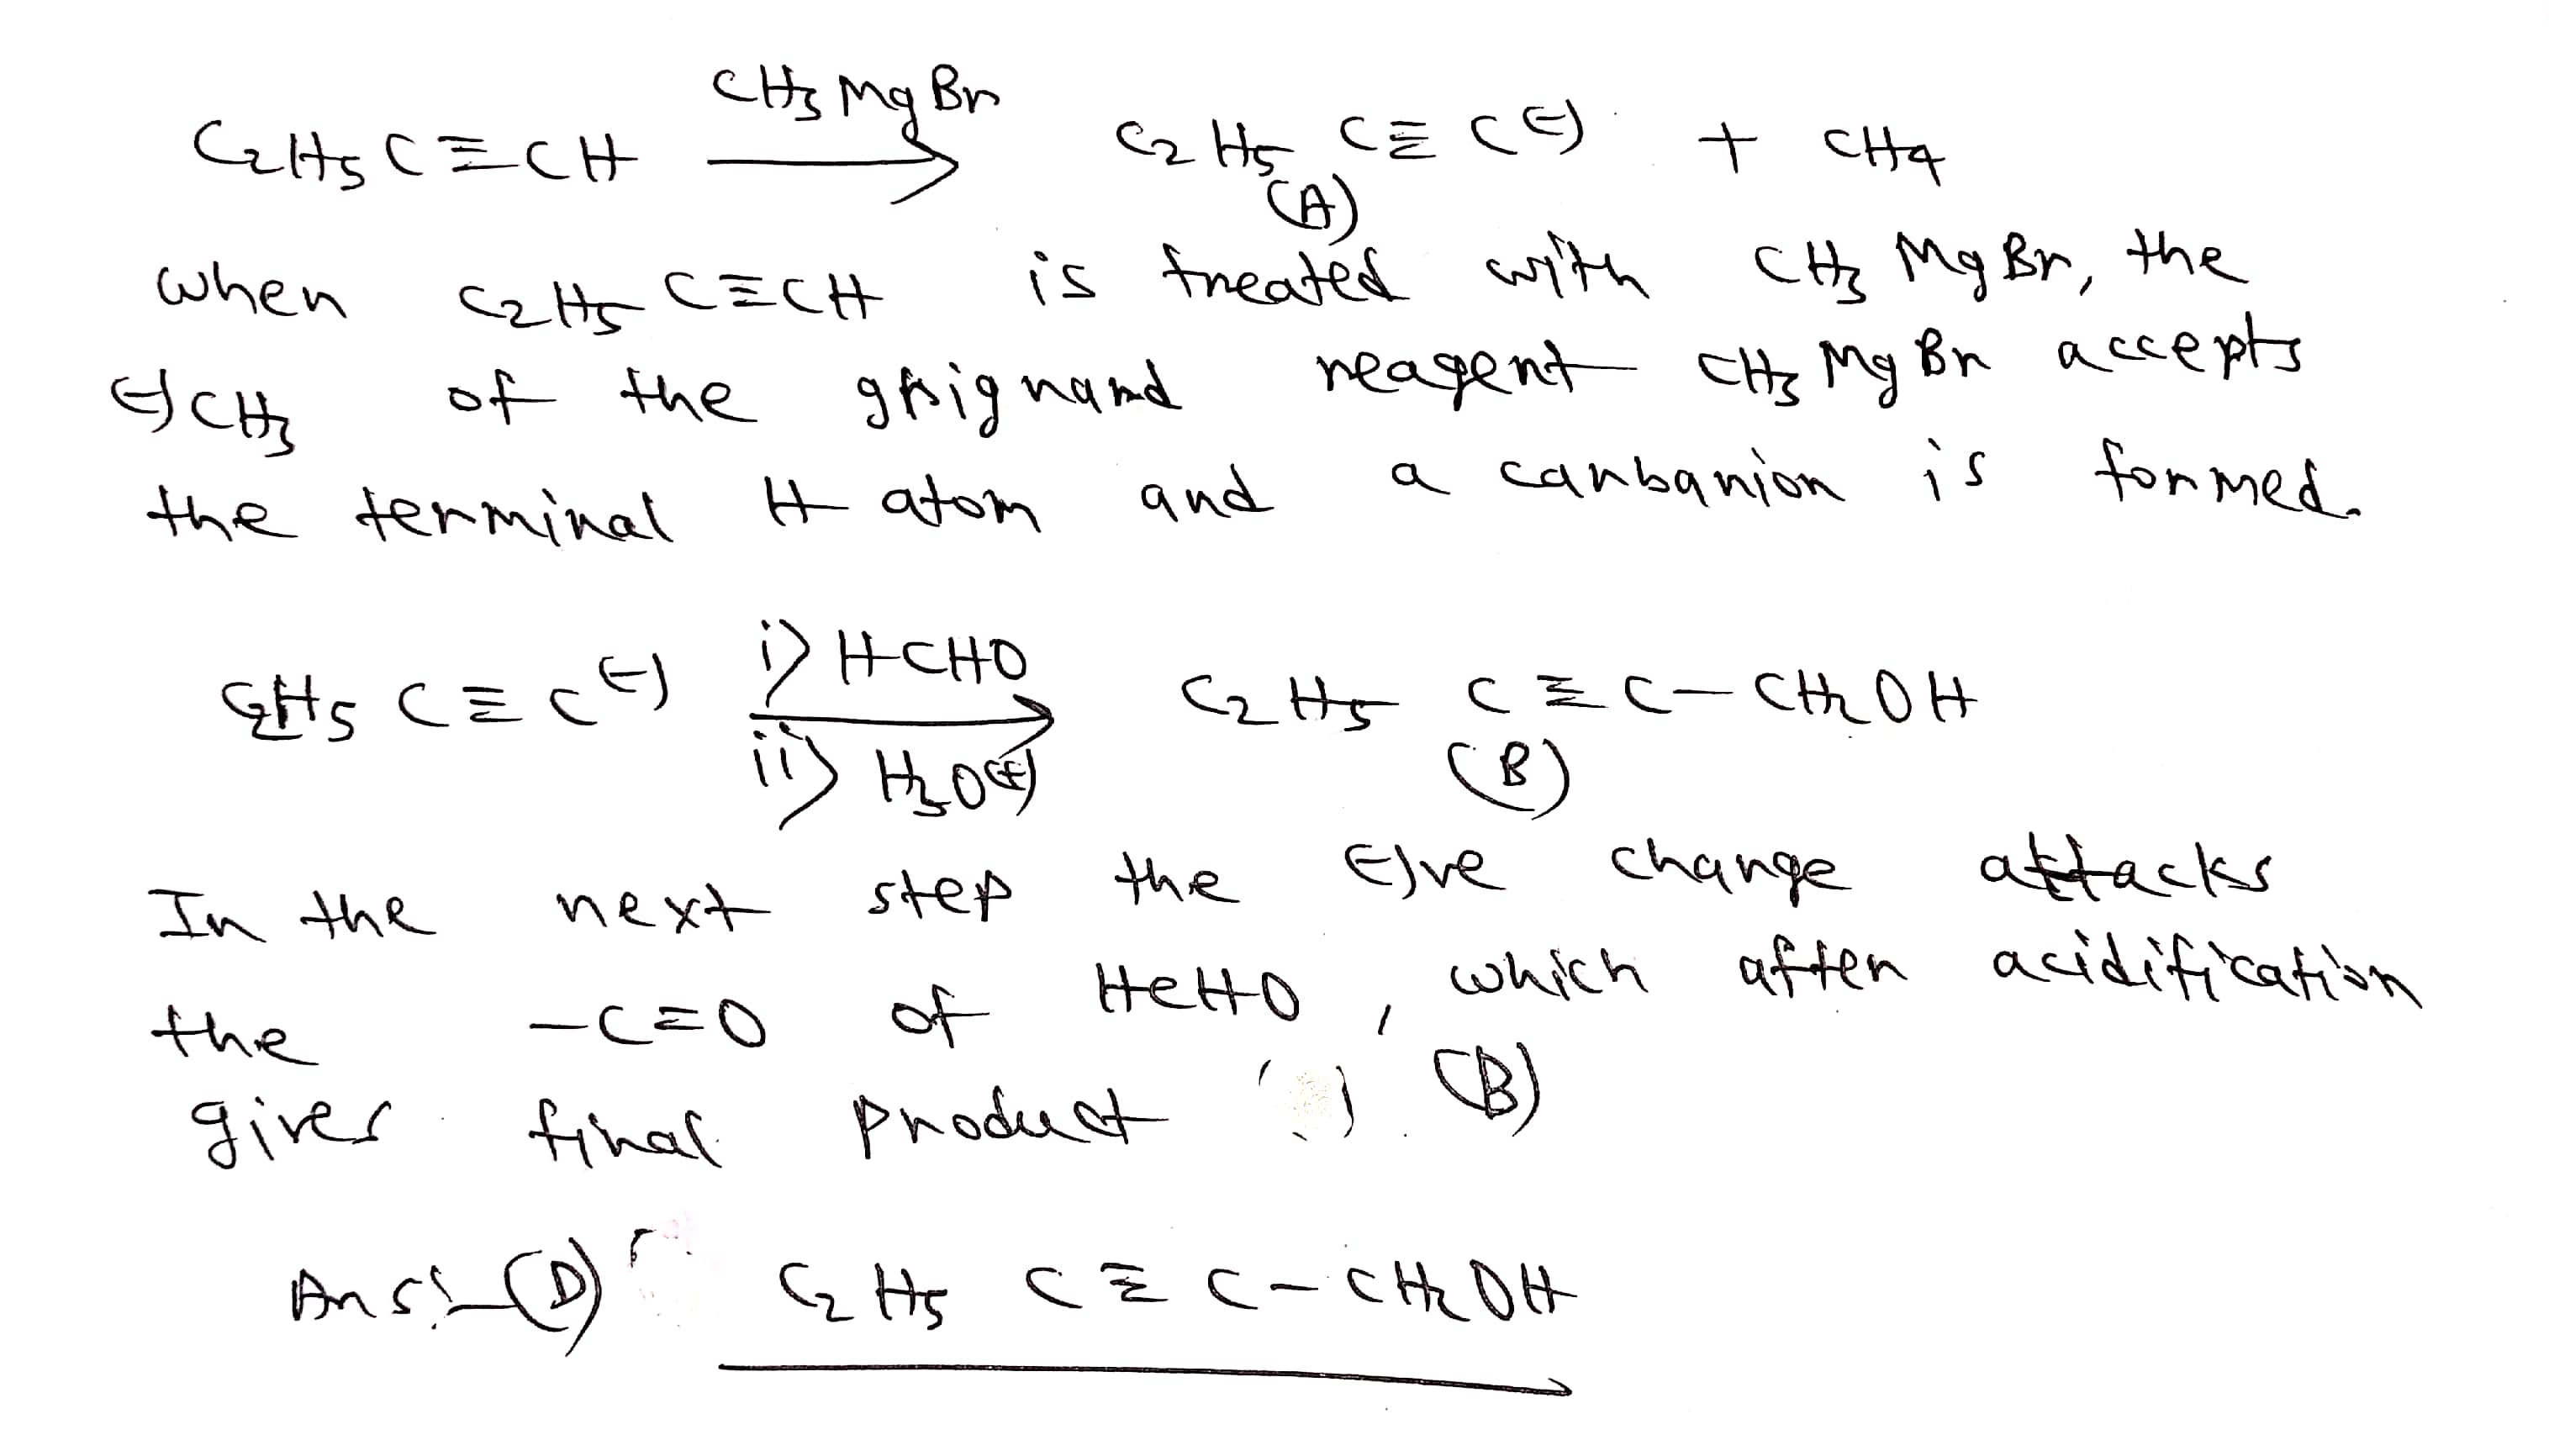 CH3 Mg Br
C2H5 C≡CH ⟶ C2H5 C≡C(-) + CH4
(A)
when C2H5 C≡CH is treated with CH3 MgBr, the
(-)CH3 of the grignard reagent CH3 MgBr accepts
the terminal H atom and a carbanion is formed.
i) HCHO
C2H5 C≡C(-) ⟶ C2H5 C≡C-CH2OH
ii) H3O(+) (B)
In the next step the (-)ve charge attacks
the -C=O of HCHO, which after acidification
gives final product (B)
Ans:- (D) C2H5 C≡C-CH2OH